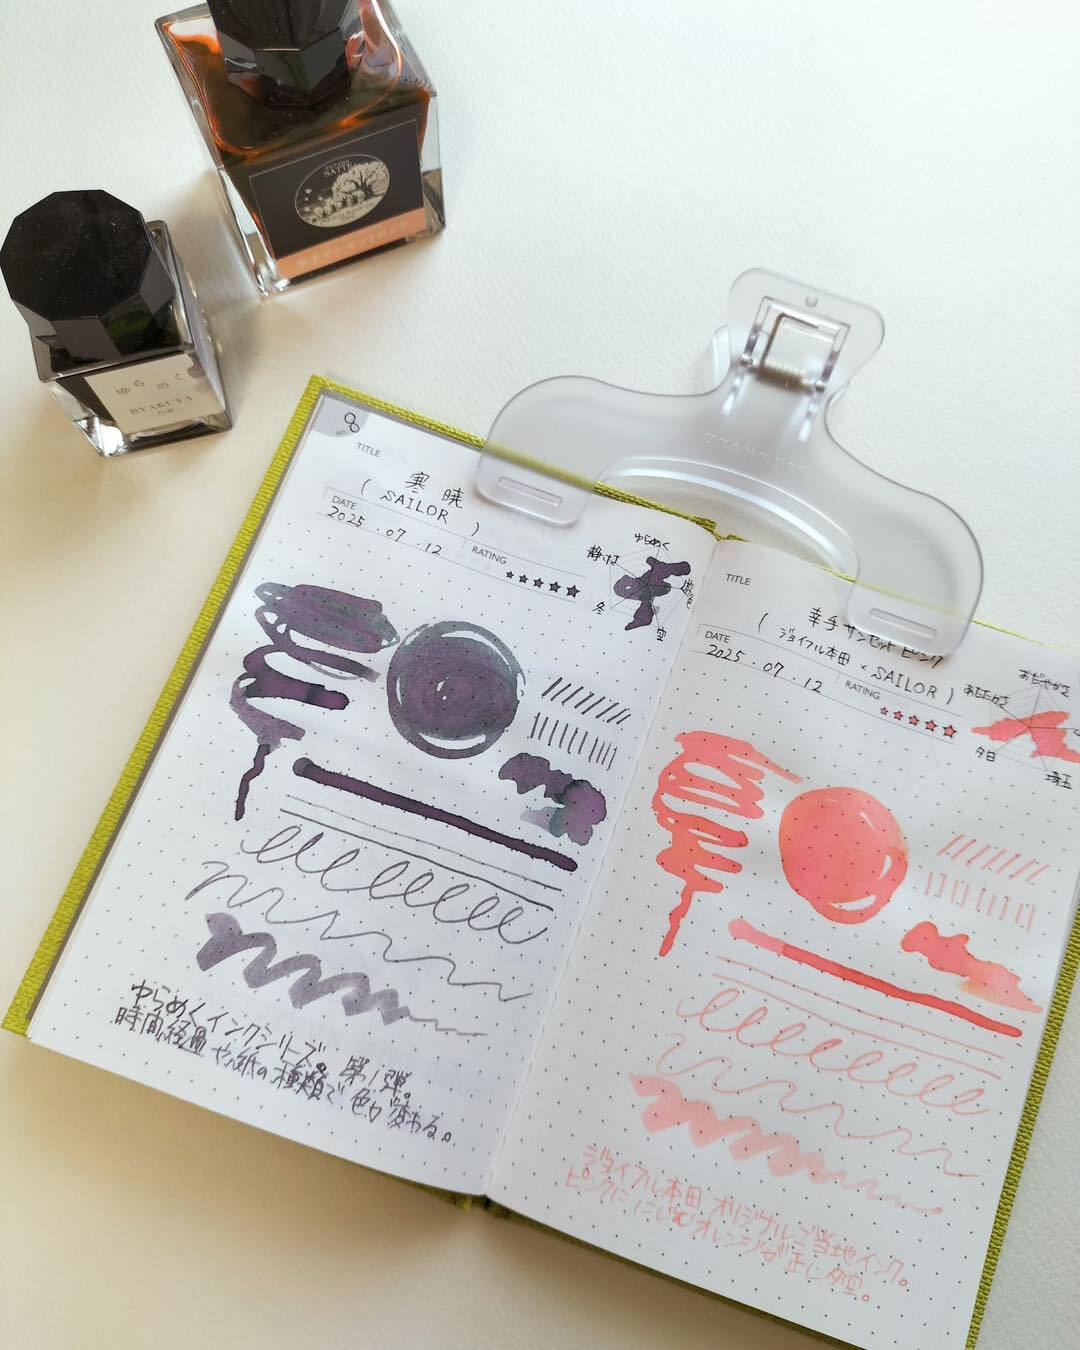 SAITA
ゆらめく
BYAKUYA
白夜
No. 8
TITLE
寒暁
( SAILOR )
DATE
2025.07.12
RATING
ゆらめく
静けさ
冬
空
ゆらめくインクシリーズ。第1弾。
時間経過や紙の種類で色が変わる。
TITLE
幸手サンセットピンク
( ジョイフル本田 × SAILOR )
DATE
2025.07.12
RATING
おだやかさ
あたたかさ
夕日
埼玉
ジョイフル本田オリジナルご当地インク。
ピンクににじむオレンジが正に夕空。